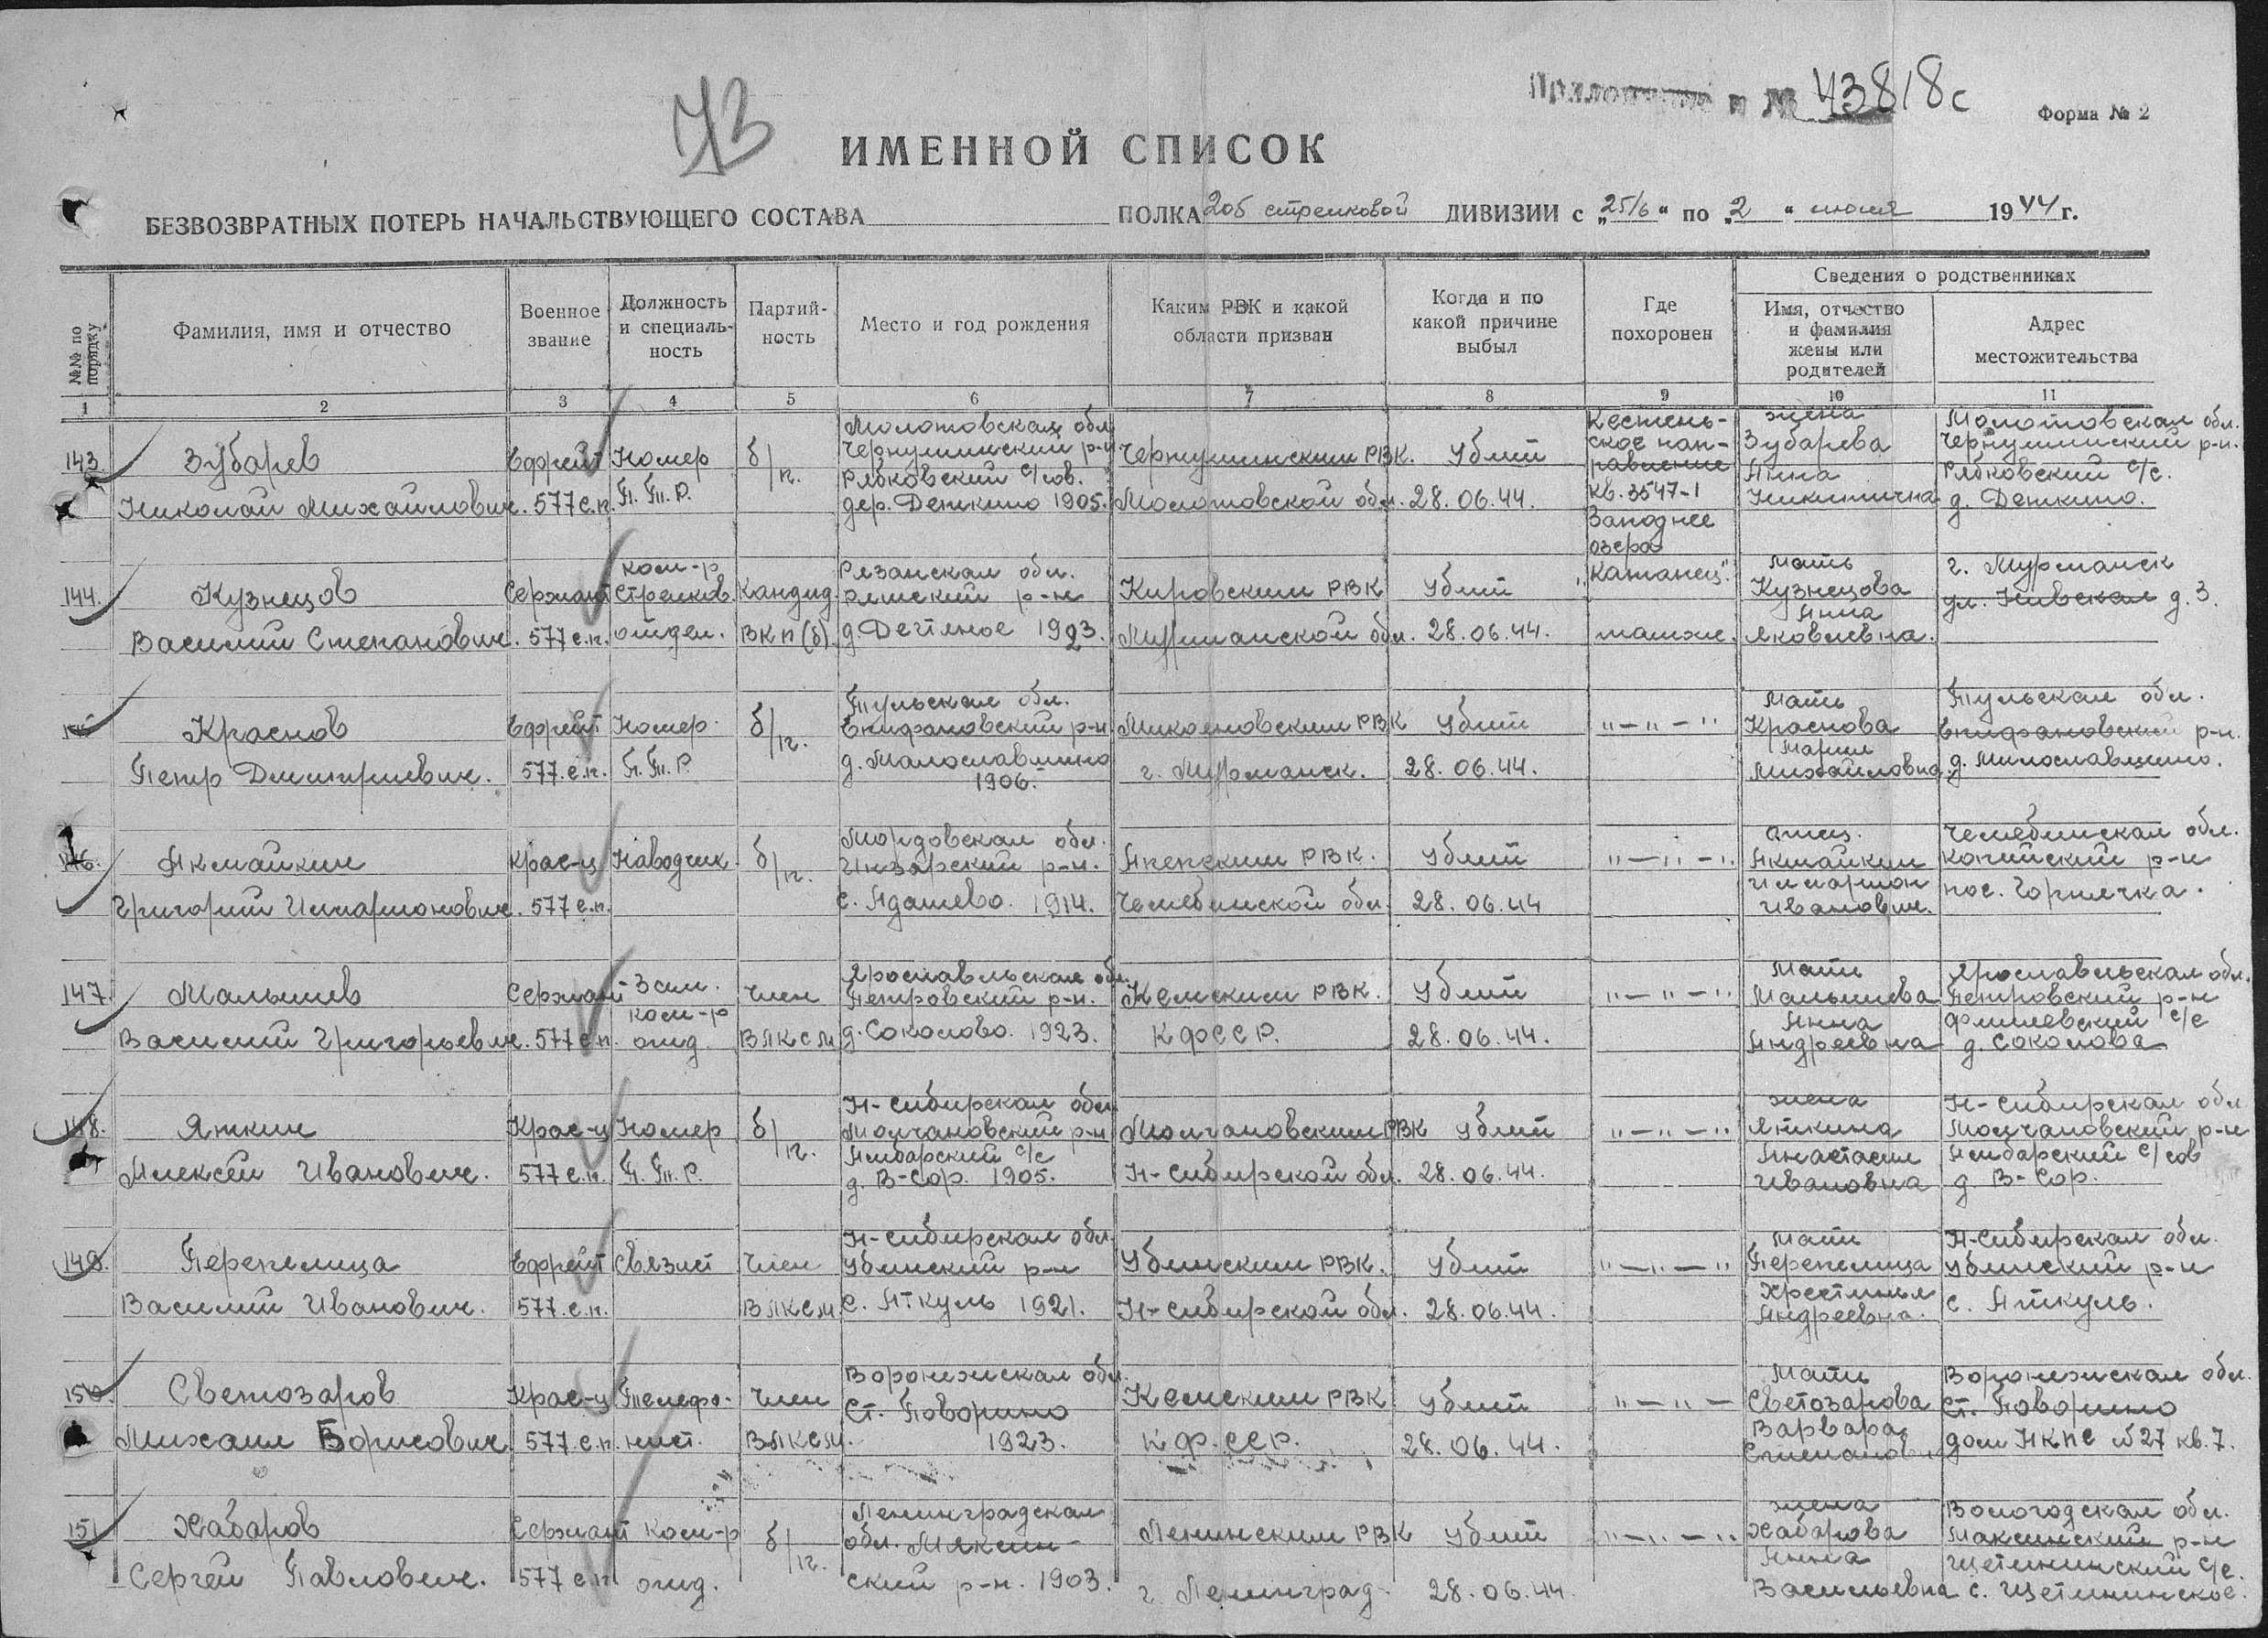 73
Приложение к № 43818с
Форма № 2
ИМЕННОЙ СПИСОК
БЕЗВОЗВРАТНЫХ ПОТЕРЬ НАЧАЛЬСТВУЮЩЕГО СОСТАВА ПОЛКА 205 стрелковой ДИВИЗИИ с „25/6“ по „2“ июля 1944 г.
№№ по порядку
Фамилия, имя и отчество
Военное звание
Должность и специальность
Партийность
Место и год рождения
Каким РВК и какой области призван
Когда и по какой причине выбыл
Где похоронен
Сведения о родственниках
Имя, отчество и фамилия жены или родителей
Адрес местожительства
1 2 3 4 5 6 7 8 9 10 11
143. Зубарев Николай Михайлович.
Ефрейт 577 с.п.
Номер П.Т.Р.
б/п.
Молотовская обл. Чернушинский р-н Рябковский с/сов. дер. Деткино 1905.
Чернушинским РВК. Молотовской обл.
Убит 28.06.44.
Кестеньское направление кв. 3547-1 Западнее озера "Катанец".
жена Зубарева Анна Никитична
Молотовская обл. Чернушинский р-н. Рябковский с/с. д. Деткино.
144. Кузнецов Василий Степанович.
Сержант 577 с.п.
ком-р Стрелков. отдел.
Кандид. ВКП(б).
Рязанская обл. Ряжский р-н д. Дегтяное 1923.
Кировским РВК Мурманской обл.
Убит 28.06.44.
также.
Мать Кузнецова Анна Яковлевна.
г. Мурманск ул. Нивская д. 3.
Краснов Петр Дмитриевич.
Ефрейт 577 с.п.
Номер П.Т.Р.
б/п.
Тульская обл. Епифановский р-н д. Малославлино 1906.
Микояновским РВК г. Мурманск.
Убит 28.06.44.
"—"—"
Мать Краснова Мария Михайловна
Тульская обл. Епифановский р-н. д. Милославщино.
146. Акмайкин Григорий Илларионович.
Крас-ц 577 с.п.
Наводчик.
б/п.
Мордовская обл. Инзарский р-н. с. Адашево. 1914.
РВК. Челябинской обл.
Убит 28.06.44
"—"—"
отец. Акмайкин Илларион Иванович.
Челябинская обл. Копийский р-н пос. Горнячка.
147. Малышев Василий Григорьевич.
Сержант 577 с.п.
Зам. ком-р отд.
член ВЛКСМ
Ярославльская обл. Петровский р-н. д. Соколово. 1923.
Кемским РВК. КФССР.
Убит 28.06.44.
"—"—"
Мать Малышева Анна Андреевна
Ярославльская обл. Петровский р-н с/с д. Соколова
148. Яткин Алексей Иванович.
Крас-ц 577 с.п.
Номер П.Т.Р.
б/п.
Н-Сибирская обл. Молчановский р-н с/с д. В-Сор. 1905.
Молчановским РВК Н-Сибирской обл.
Убит 28.06.44.
"—"—"
жена Яткина Анастасия Ивановна
Н-Сибирская обл Молчановский р-н с/сов д. В-Сор.
149. Перепелица Василий Иванович.
Ефрейт 577.с.п.
Связист
Член ВЛКСМ
Н-Сибирская обл. Убинский р-н с. Аткуль 1921.
Убинским РВК. Н-Сибирской обл.
Убит 28.06.44.
"—"—"
Мать Перепелица Хрестинья Андреевна.
Н-Сибирская обл. Убинский р-н с. Аткуль.
150. Светозаров Михаил Борисович
Крас-ц 577 с.п.
Телефонист.
Член ВЛКСМ.
Воронежская обл. Ст. Поворино 1923.
Кемским РВК КФ.ССР.
Убит 28.06.44.
"—"—
Мать Светозарова Варвара
Воронежская обл. Ст. Поворино дом НКПС №27 кв. 7.
151 Хабаров Сергей Павлович.
Сержант 577 с.п
ком-р отд.
б/п.
Ленинградская обл. Мяксинский р-н. 1903.
Ленинским РВК г. Ленинград.
Убит 28.06.44.
"—"—"
жена Хабарова Анна Васильевна
Вологодская обл. Максинский р-н Щетининский с/с. с. Щетининское.